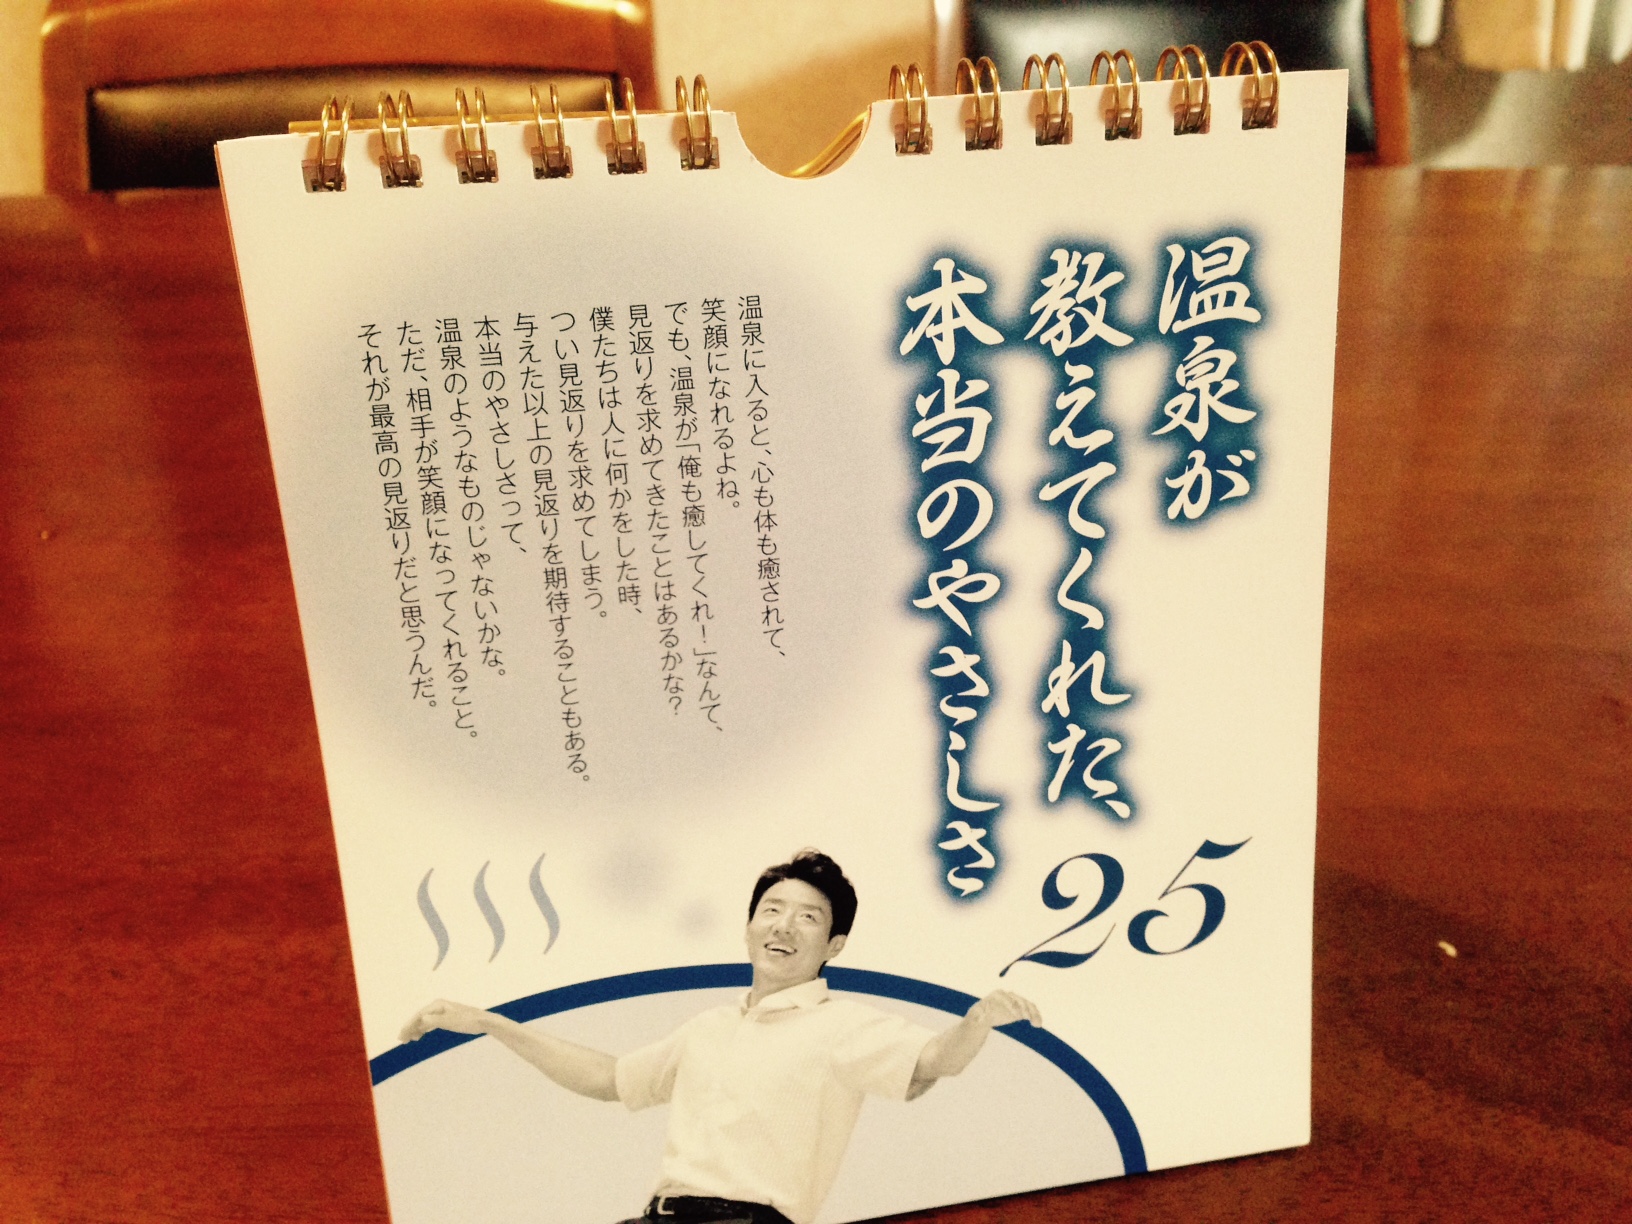 温泉が
教えてくれた、
本当のやさしさ
25
温泉に入ると、心も体も癒されて、
笑顔になれるよね。
でも、温泉が「俺も癒してくれ！」なんて、
見返りを求めてきたことはあるかな？
僕たちは人に何かをした時、
つい見返りを求めてしまう。
与えた以上の見返りを期待することもある。
本当のやさしさって、
温泉のようなものじゃないかな。
ただ、相手が笑顔になってくれること。
それが最高の見返りだと思うんだ。